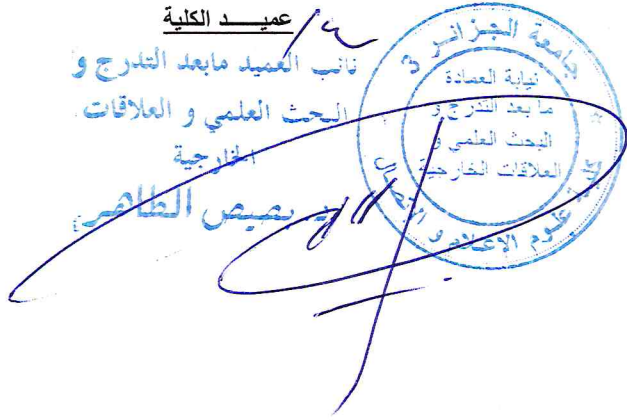 عميـــد الكلية
نائب العميد مابعد التدرج و
البحث العلمي و العلاقات
الخارجية
بصيص الطاهر
جامعة الجزائر 3
نيابة العمادة
ما بعد التدرج و
البحث العلمي و
العلاقات الخارجية
علوم الإعلام و الاتصال